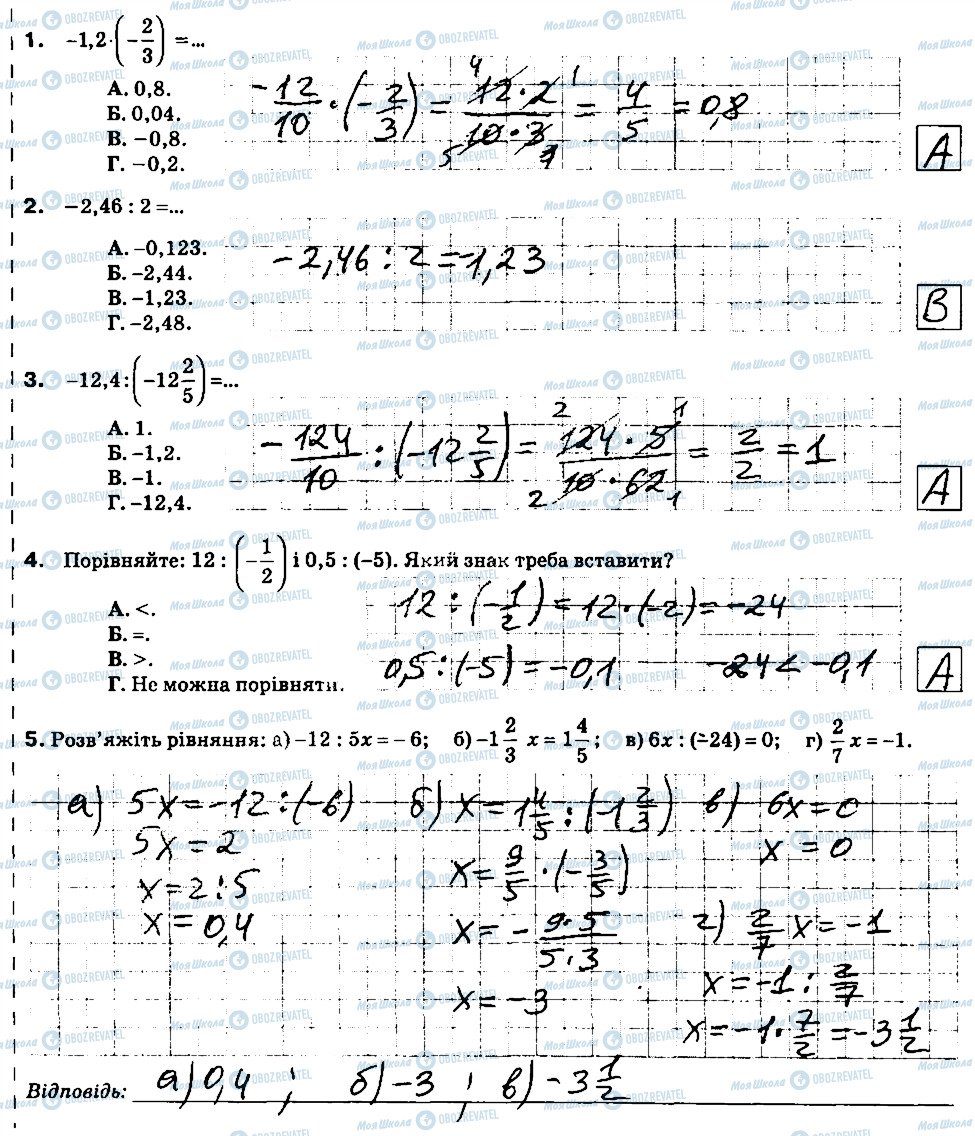 1. −1,2·(−2/3) =...
А. 0,8.
Б. 0,04.
В. −0,8.
Г. −0,2.
−12/10 · (−2/3) = 12·2/10·3 = 4/5 = 0,8
4 1
5 1
А
2. −2,46 : 2 =...
А. −0,123.
Б. −2,44.
В. −1,23.
Г. −2,48.
−2,46 : 2 = −1,23
В
3. −12,4 : (−12 2/5) =...
А. 1.
Б. −1,2.
В. −1.
Г. −12,4.
−124/10 : (−12 2/5) = 124·5/10·62 = 2/2 = 1
2 1
2 1
А
4. Порівняйте: 12 : (−1/2) і 0,5 : (−5). Який знак треба вставити?
А. <.
Б. =.
В. >.
Г. Не можна порівняти.
12 : (−1/2) = 12·(−2) = −24
0,5 : (−5) = −0,1 −24 < −0,1
А
5. Розв’яжіть рівняння: а) −12 : 5x = − 6; б) −1 2/3 x = 1 4/5; в) 6x : (−24) = 0; г) 2/7 x = −1.
а) 5x = −12 : (−6)
5x = 2
x = 2 : 5
x = 0,4
б) x = 1 4/5 : (−1 2/3)
x = 9/5 · (−3/5)
x = − 9·5/5·3
x = −3
в) 6x = 0
x = 0
г) 2/7 x = −1
x = −1 : 2/7
x = −1 · 7/2 = −3 1/2
Відповідь: а) 0,4 ; б) −3 ; в) −3 1/2
МояШкола OBOZREVATEL